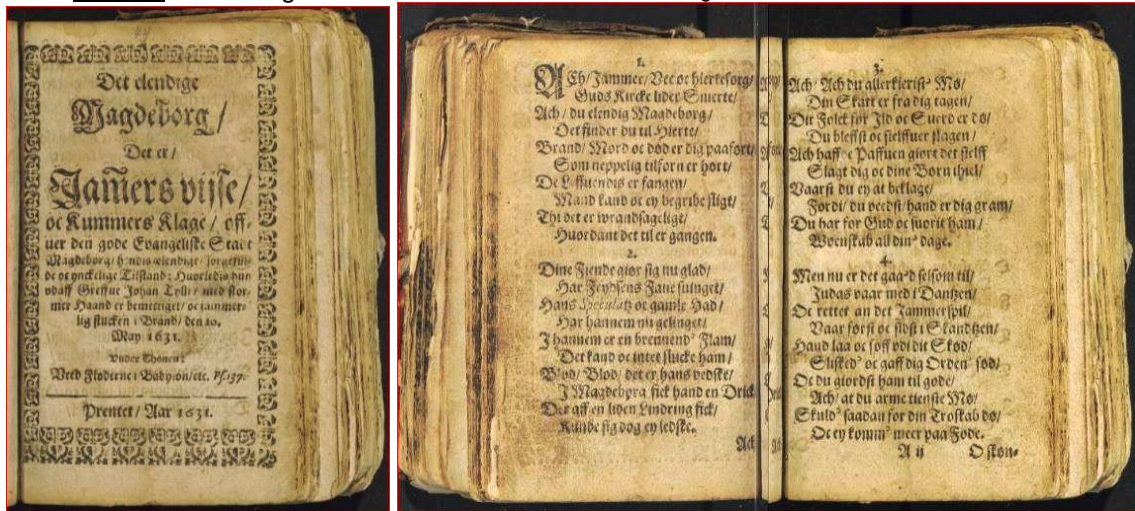 Det elendige
Magdeborg/
Det er/
Jam̃ers vijse/
oc Kummers Klage/ off-
uer den gode Evangeliske Stadt
Magdeborg/ hindis ælendige/ sorgefin-
de oc ynckelige Tilstand: Huorledis hun
vdaff Greffue Johan Tylli/ med stor-
mer Haand er bemectiget/ oc jammer-
lig stucken i Brand/ den 10.
May 1631.
Vnder Thonen:
Veed Floderne i Babylon/etc. Ps. 137.
Prentet/ Aar 1631.
1.
ACh/ Jammer/ Vee oc hiertesorg/
Guds Kircke lider Smerte/
Ach/ du elendig Magdeborg/
Det finder du til Hierte/
Brand/ Mord oc død er dig paafört/
Som neppelig tilforn er hört/
De Leffuendis er fangen/
Mand kand oc ey begribe sligt/
Thi det er wrandsageligt/
Huordant det til er gangen.
2.
Dine Fiende giör sig nu glad/
Har Frydsens Fane suinget/
Hans Speculatz oc gamle Had/
Har hannem nu gelinget/
J hannem er en brennend' Flam/
Det kand oc intet slucke ham/
Blod/ Blod/ det er hans vedske/
J Magdeborg fick hand en Drick
Der aff en liden Lindring fick/
Kunde sig dog ey ledske.
Ach
3.
Ach/ Ach du allerkierist' Mø/
Din Skatt er fra dig tagen/
Dit Folck før Jld oc Suerd er dø/
Du bleffst oc sielffuer slagen/
Ach haffde Paffuen giort det sielff
Slagt dig oc dine Børn ihiel/
Vaarst du ey at beklage/
Fordi/ du veedst/ hand er dig gram/
Du har for Gud oc suorit ham/
Woenskab all din' dage.
4.
Men nu er det gaa'd selsom til/
Judas vaar med i Dantzen/
Oc rettet an det Jammerspil/
Vaar først oc sidst i Skandtzen/
Hand laa oc soff vdi dit Skød/
Slisked' oc gaff dig Orden' sød/
Oc du giordst ham til gode/
Ach/ at du arme tienste Mø/
Skuld' saadan for din Troskab dø/
Oc ey komm' meer paa Fode.
A ij
O skøn-